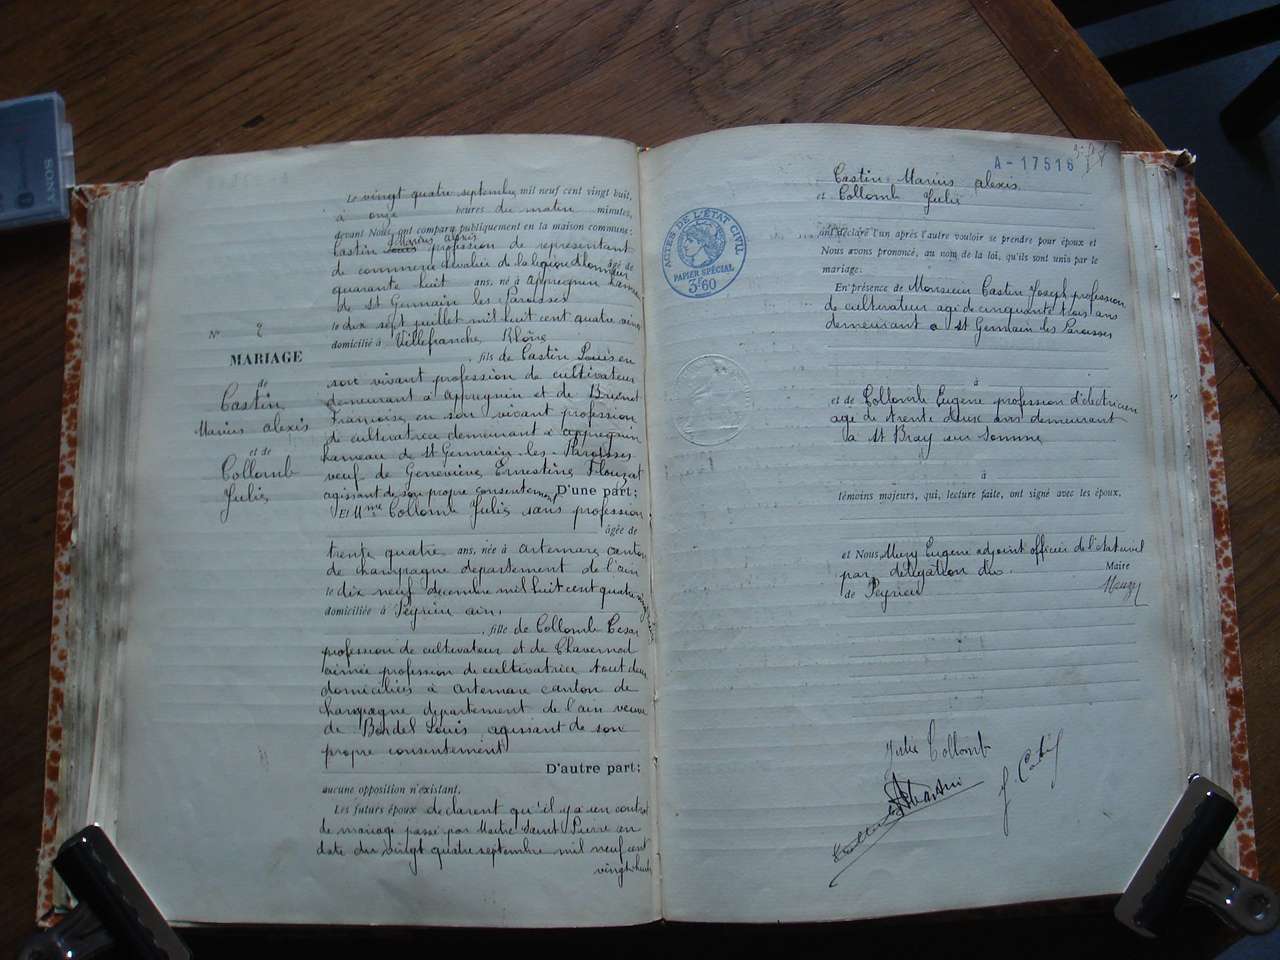 Le vingt quatre septembre mil neuf cent vingt huit,
à onze heures du matin minutes,
devant Nous, ont comparu publiquement en la maison commune:
Castin Marius alexis profession de representant
de commerce chevalier de la legion d'honneur âgé de
quarante huit ans, né à appregnin hameau
de St Germain les Paroisses
le dix sept juillet mil huit cent quatre vingt
domicilié à Villefranche Rhône
fils de Castin Louis en
son vivant profession de cultivateur
demeurant à appregnin et de
Françoise en son vivant profession
de cultivatrice demeurant à appregnin
hameau de St Germain-les-Paroisses
veuf de Geneviève Ernestine
agissant de son propre consentement D'une part;
Et Mme Collomb Julie sans profession
âgée de
trente quatre ans, née à artemare canton
de champagne departement de l'ain
le dix neuf decembre mil huit cent quatre vingt
domiciliée à Peyrieu ain.
fille de Collomb Cesar
profession de cultivateur et de Clavernod
aimée profession de cultivatrice tout deux
domiciliés à artemare canton de
champagne departement de l'ain veuve
de Bordel Louis agissant de son
propre consentement
D'autre part;
aucune opposition n'existant.
Les futurs époux declarent qu'il y a un contrat
de mariage passé par Maitre Saint Pierre en
date du vingt quatre septembre mil neuf cent
vingt huit
N° 2
MARIAGE
de
Castin
Marius alexis
et de
Collomb
Julie
A-17516
Castin Marius alexis
et Collomb Julie
ont déclaré l'un après l'autre vouloir se prendre pour époux et
Nous avons prononcé, au nom de la loi, qu'ils sont unis par le
mariage.
En présence de Monsieur Castin Joseph profession
de cultivateur agé de cinquante trois ans
demeurant a St Germain les Paroisses
à
et de Collomb Eugene profession d'électricien
age de trente deux ans demeurant
a St Bray sur somme
à
témoins majeurs, qui, lecture faite, ont signé avec les époux,
et Nous Eugene adjoint officier de l'etat civil
par délégation du Maire
de Peyrieu
Julie Collomb
ACTES DE L'ÉTAT CIVIL
PAPIER SPÉCIAL
3f60
SONY